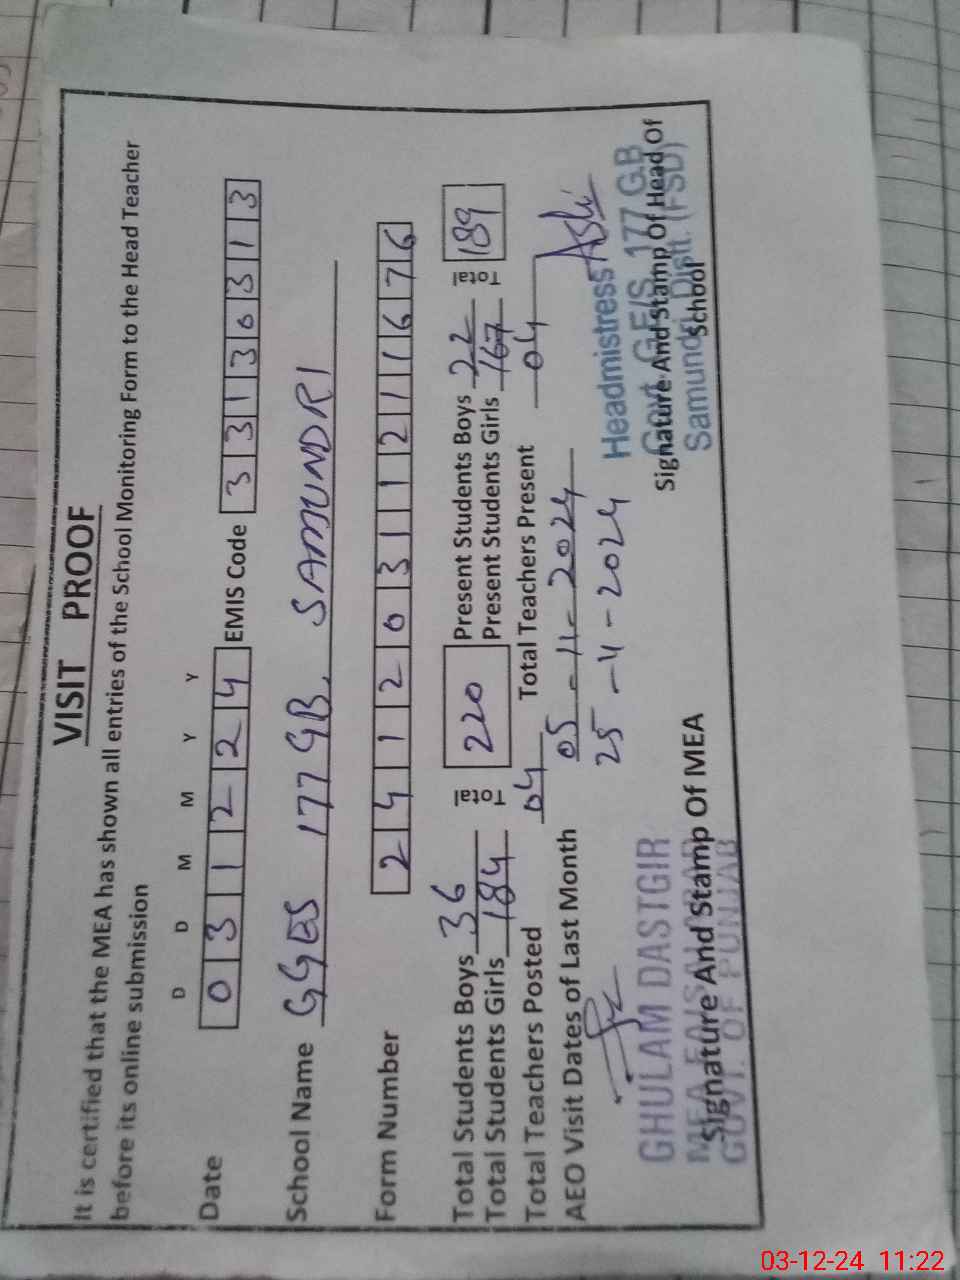 VISIT PROOF
It is certified that the MEA has shown all entries of the School Monitoring Form to the Head Teacher
before its online submission
D D M M Y Y
Date 031224 EMIS Code 33130313
School Name GGES 177 GB, SAMUNDRI
Form Number 24120311211676
Total Students Boys 36 Total 220 Present Students Boys 22 Total 189
Total Students Girls 184 Present Students Girls 167
Total Teachers Posted 04 Total Teachers Present 04
AEO Visit Dates of Last Month 05-11-2024
25-11-2024
GHULAM DASTGIR
MEA FAISALABAD
GOVT. OF PUNJAB
Signature And Stamp Of MEA
Headmistress
Govt. GE/S 177 GB
Samundri Distt. (FSD)
Signature And Stamp Of Head Of
School
03-12-24 11:22